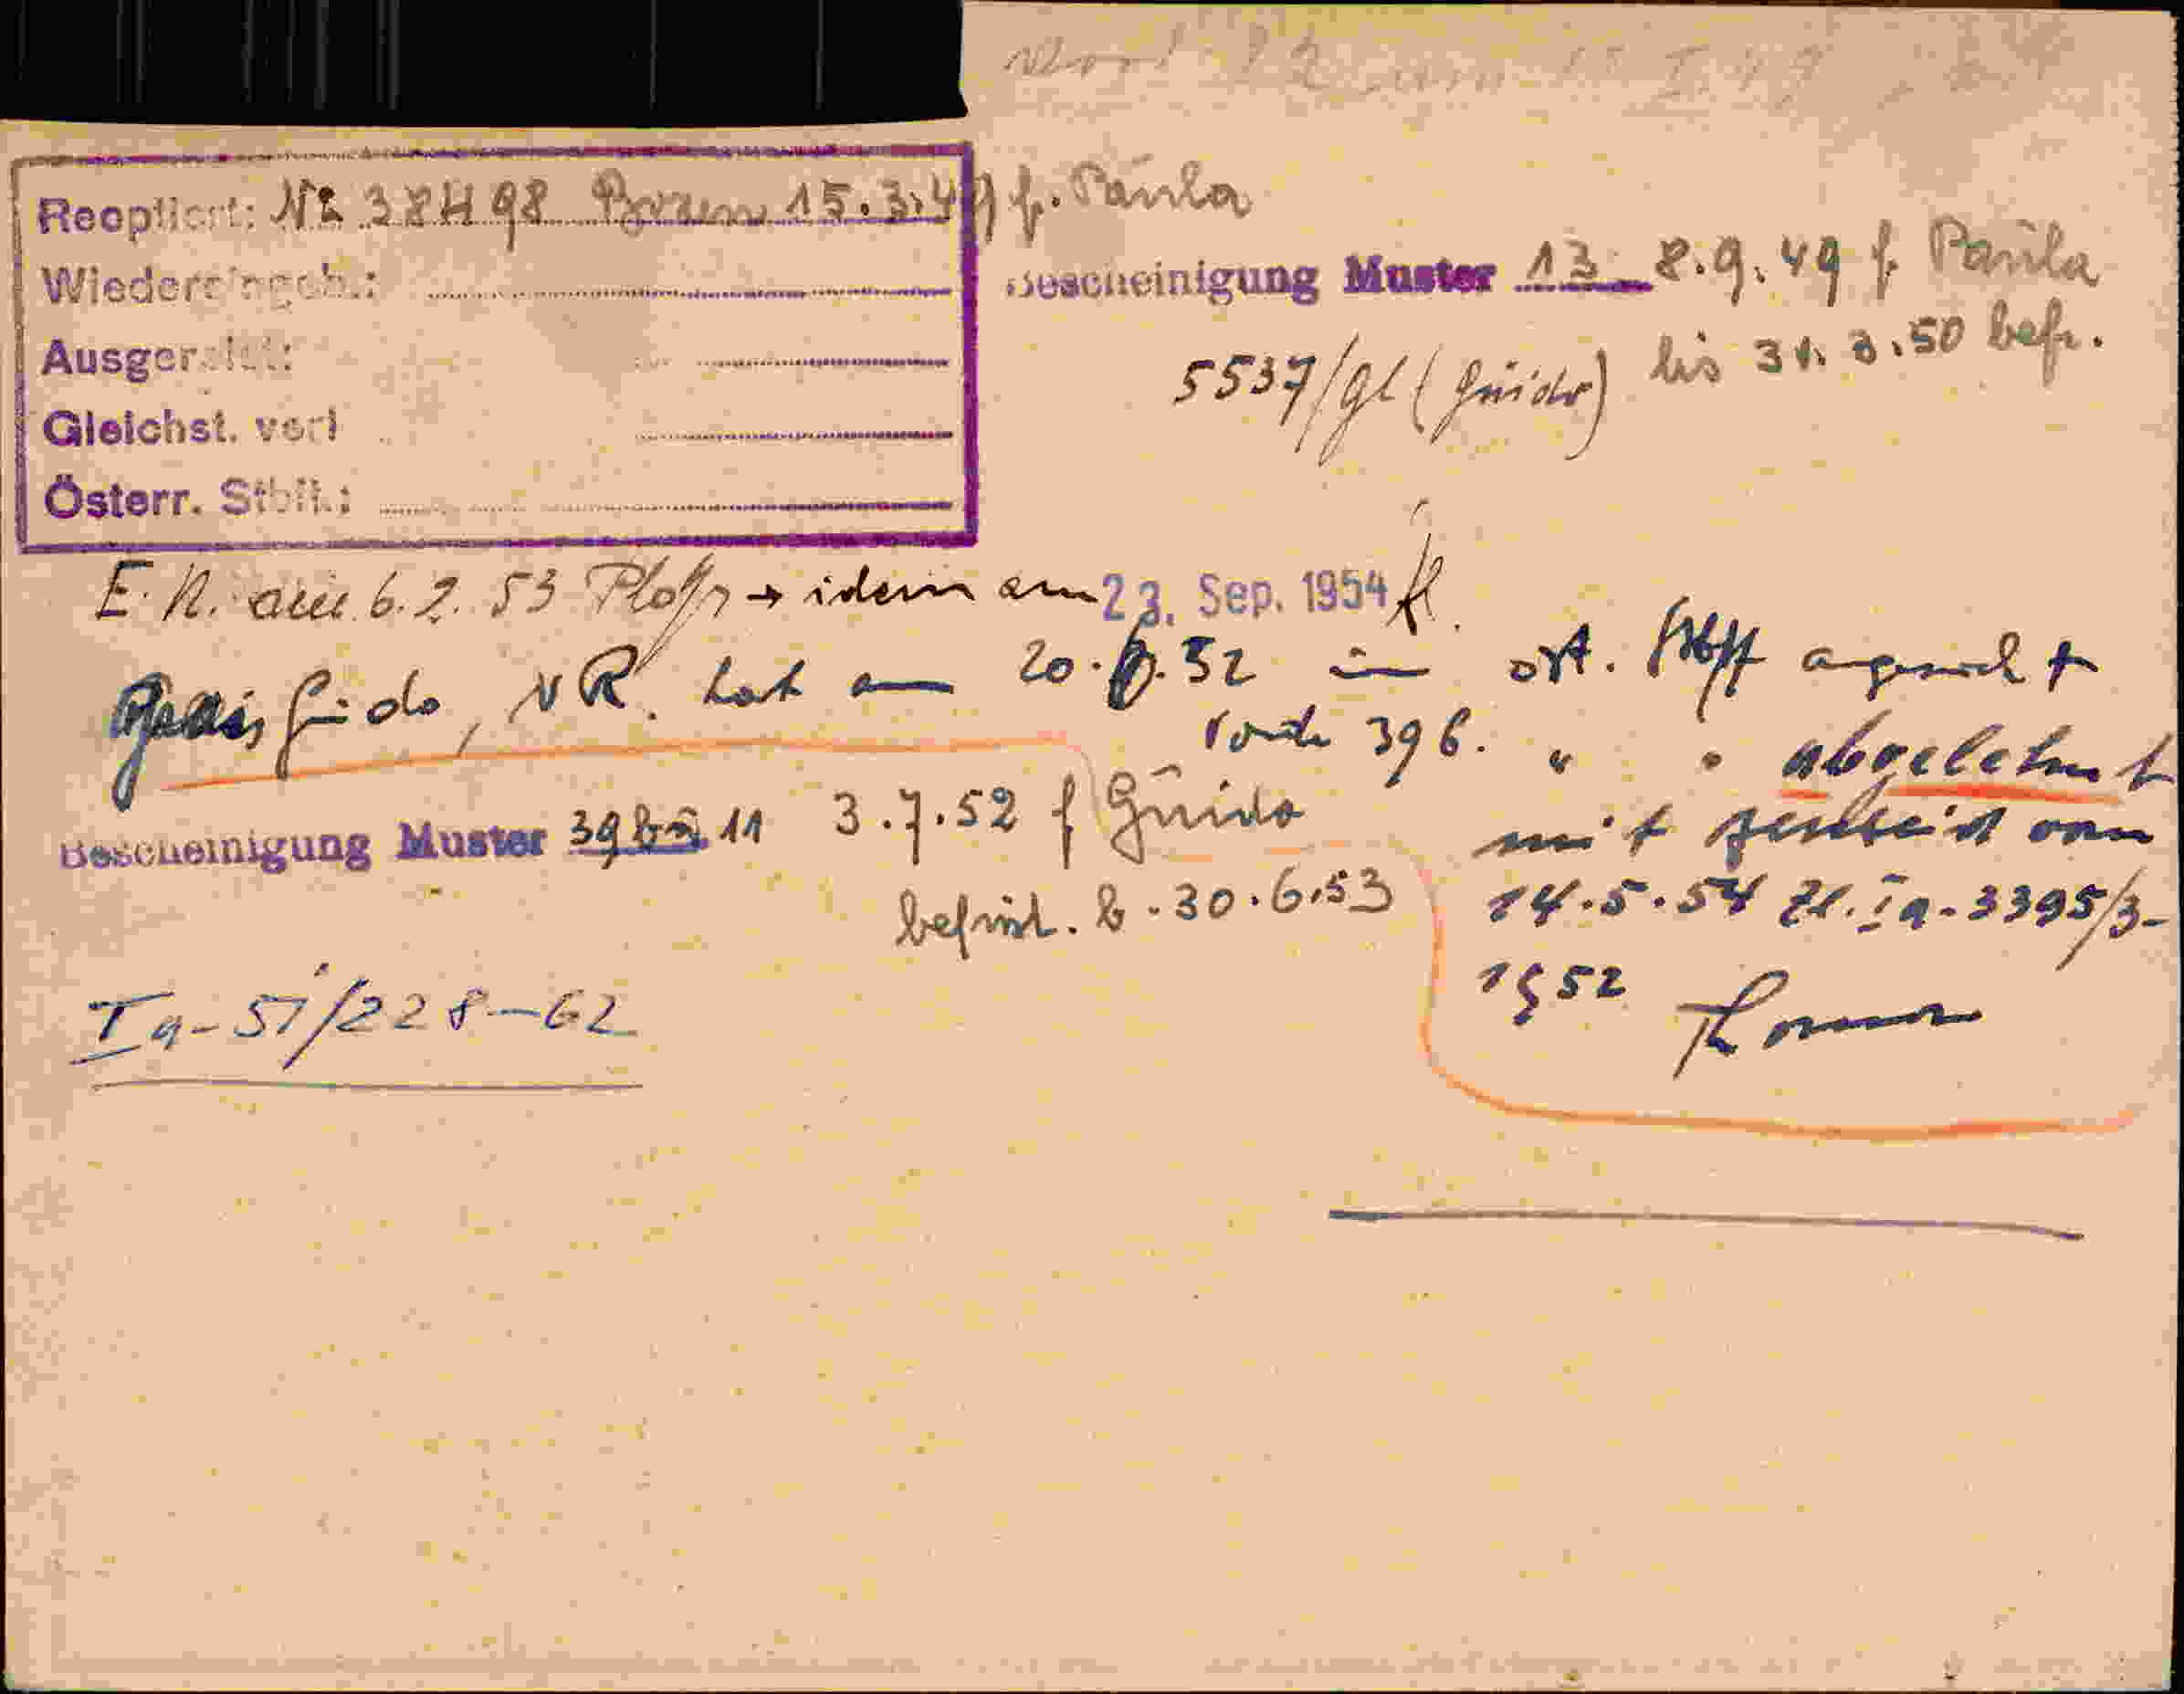 Reoptiert: Nr 38498 Bozen 15.3.49 f. Paula
Wiedereingeb.:
Ausger
Gleichst. verl
Österr. Stbft.:
Bescheinigung Muster 13 8.9.49 f. Paula
5537/gl (Guido) bis 31.3.50 befr.
E. N. am 6.2.53 → idem am 23. Sep. 1954
Guido, NR. hat am 20. .52 in öst.
396. " " abgelehnt
mit Bescheid vom
14.5.54 Zl. Ia-3395/3-
1952
Bescheinigung Muster 39 11 3.7.52 f Guido
befrist. b. 30.6.53
Ia-51/228-62